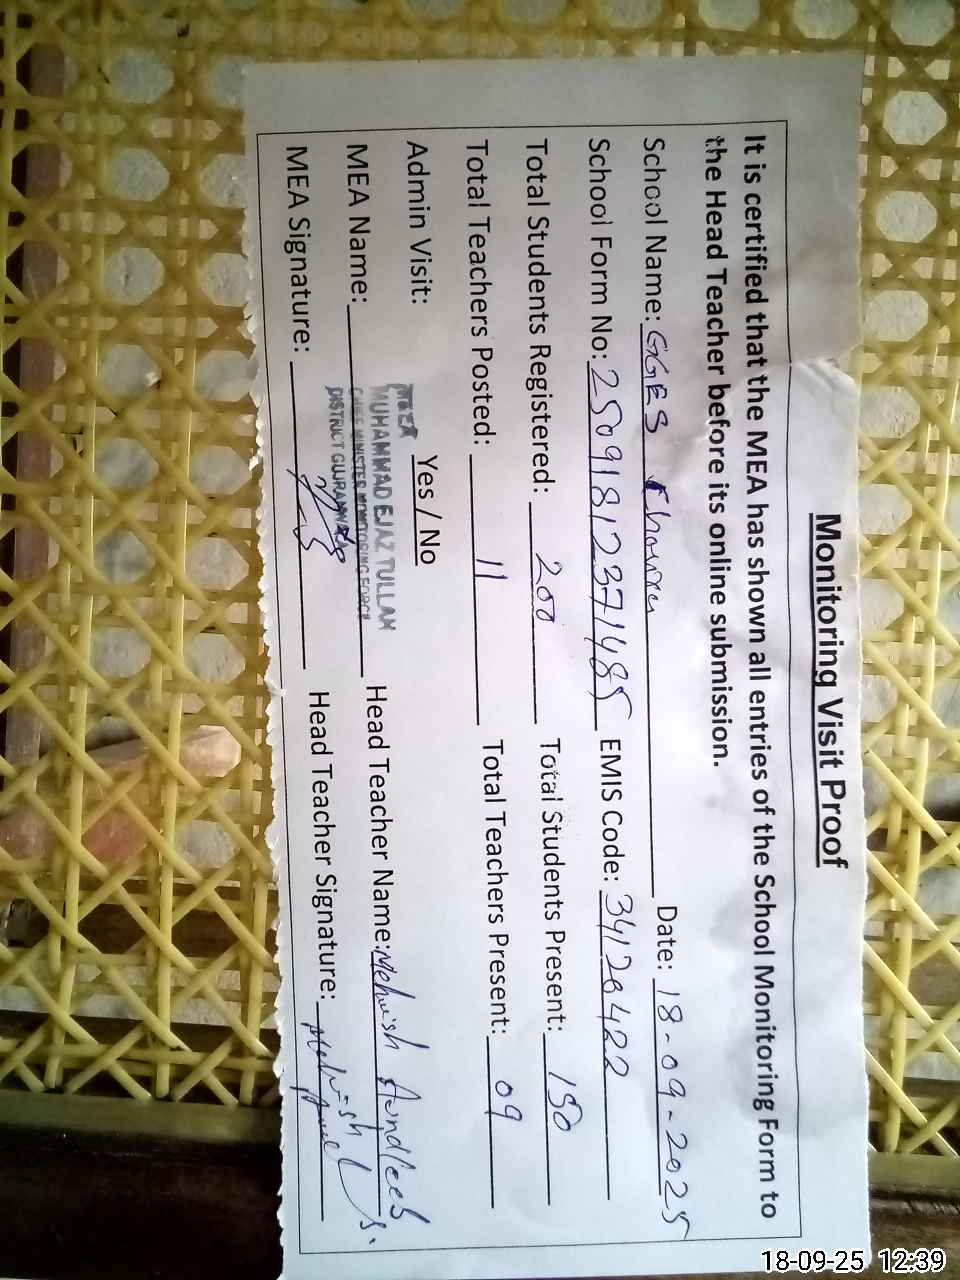 Monitoring Visit Proof
It is certified that the MEA has shown all entries of the School Monitoring Form to
the Head Teacher before its online submission.
School Name: GGES Date: 18-09-2025
School Form No: 25091812371485 EMIS Code: 34120422
Total Students Registered: 200 Total Students Present: 150
Total Teachers Posted: 11 Total Teachers Present: 09
Admin Visit: Yes / No
MEA
MUHAMMAD EJAZ TULLAH
MEA Name: CHIEF MINISTER MONITORING FORCE Head Teacher Name: Mehwish
DISTRICT GUJRANWALA
MEA Signature: Head Teacher Signature: Mehwish
18-09-25 12:39